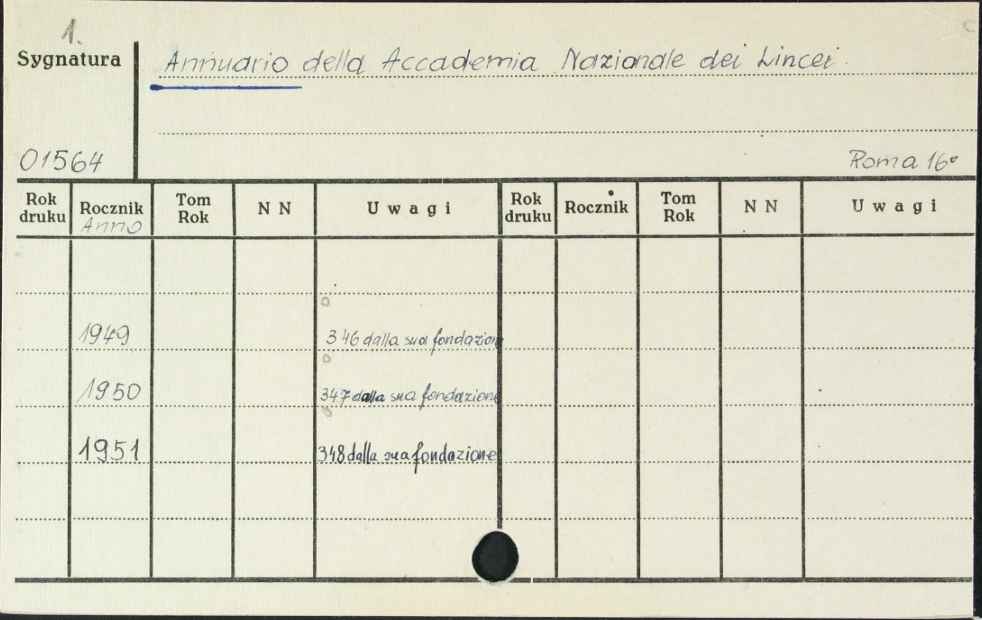 1.
Sygnatura
Annuario della Accademia Nazionale dei Lincei
01564
Roma 16°
Rok druku Rocznik Anno Tom Rok NN Uwagi Rok druku Rocznik Tom Rok NN Uwagi
1949 346 dalla sua fondazion
1950 347 dalla sua fondazione
1951 348 dalla sua fondazione